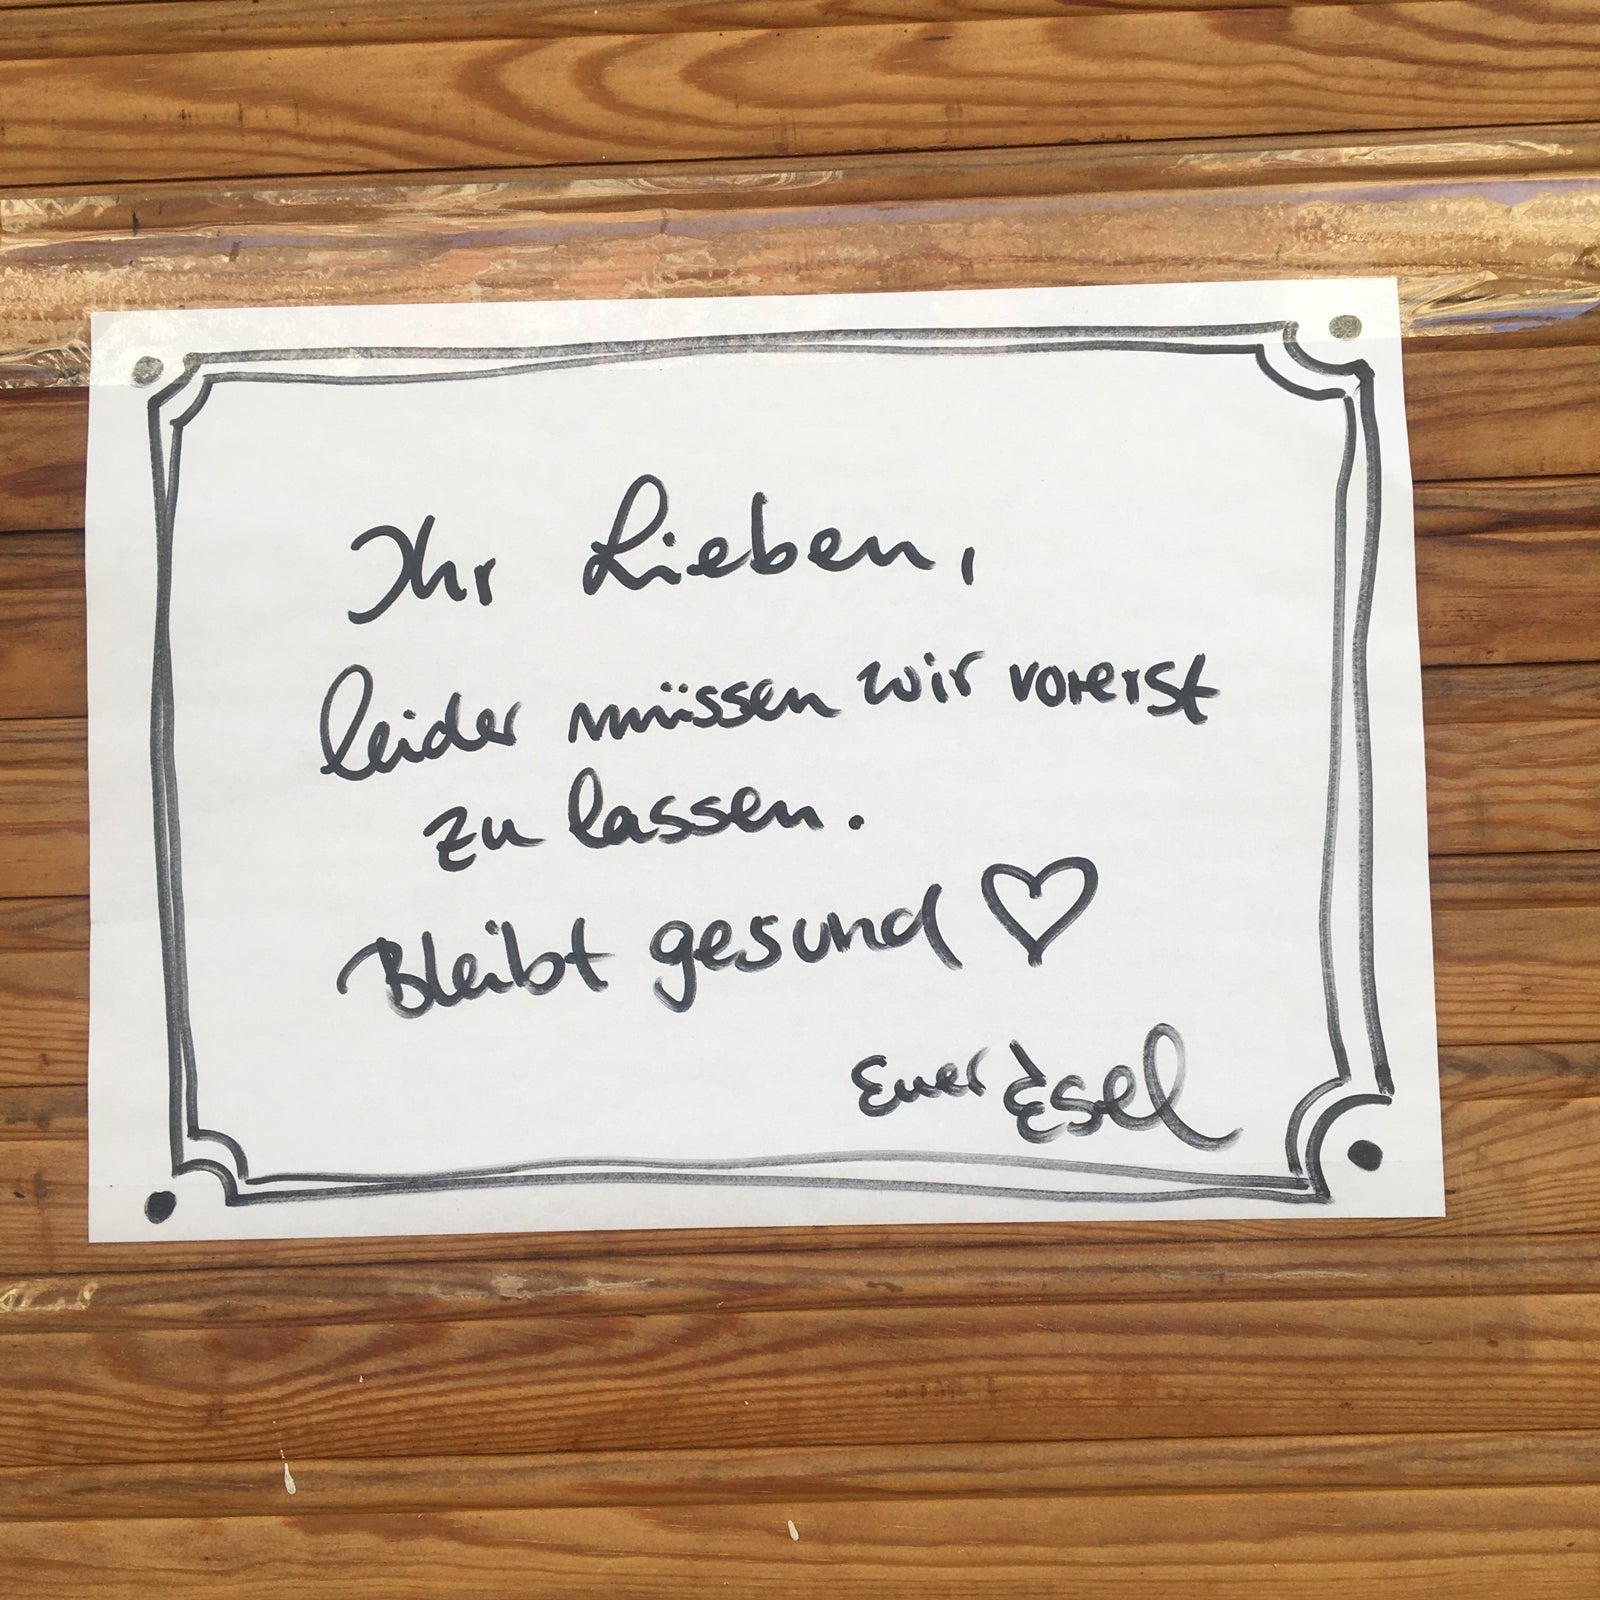 Ihr Lieben,
leider müssen wir vorerst
zu lassen.
Bleibt gesund ♡
Euer Esel